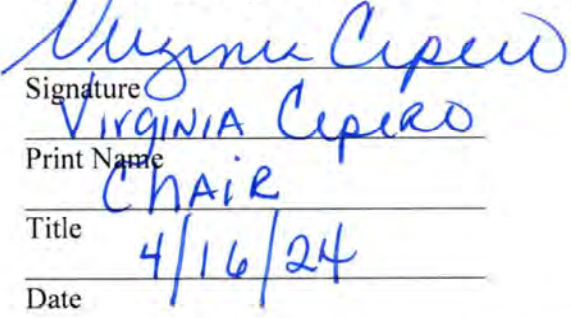 Virginia Cepero
Signature
Virginia Cepero
Print Name
Chair
Title
4/16/24
Date